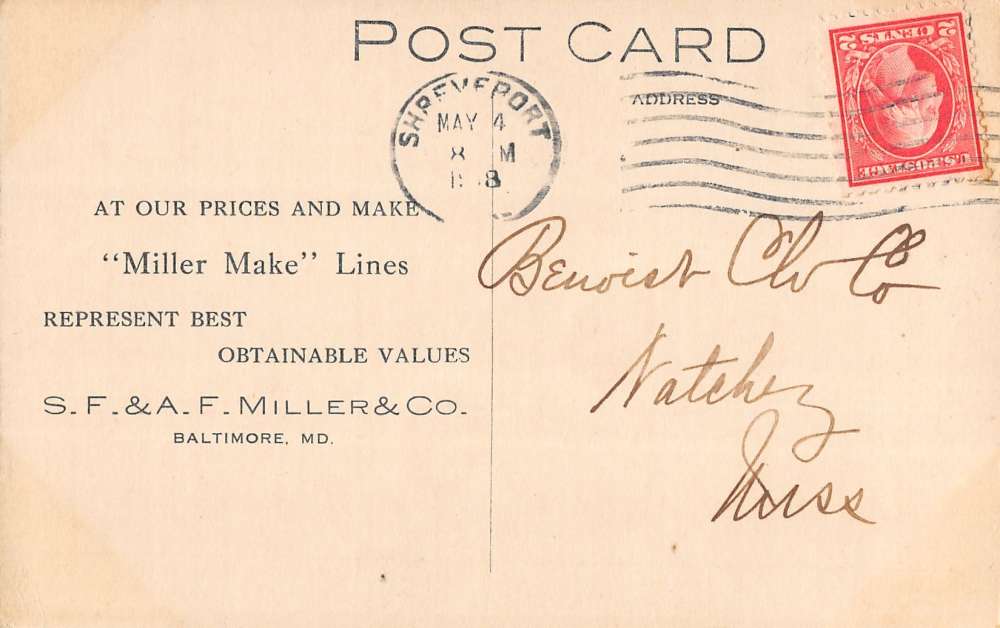 POST CARD
SHREVEPORT
MAY 4
8 M
ADDRESS
2 CENTS 2
U.S. POSTAGE
AT OUR PRICES AND MAKE
“Miller Make” Lines
REPRESENT BEST
OBTAINABLE VALUES
S. F. & A. F. MILLER & CO.
BALTIMORE, MD.
Benoist Clo Co
Natchez
Miss